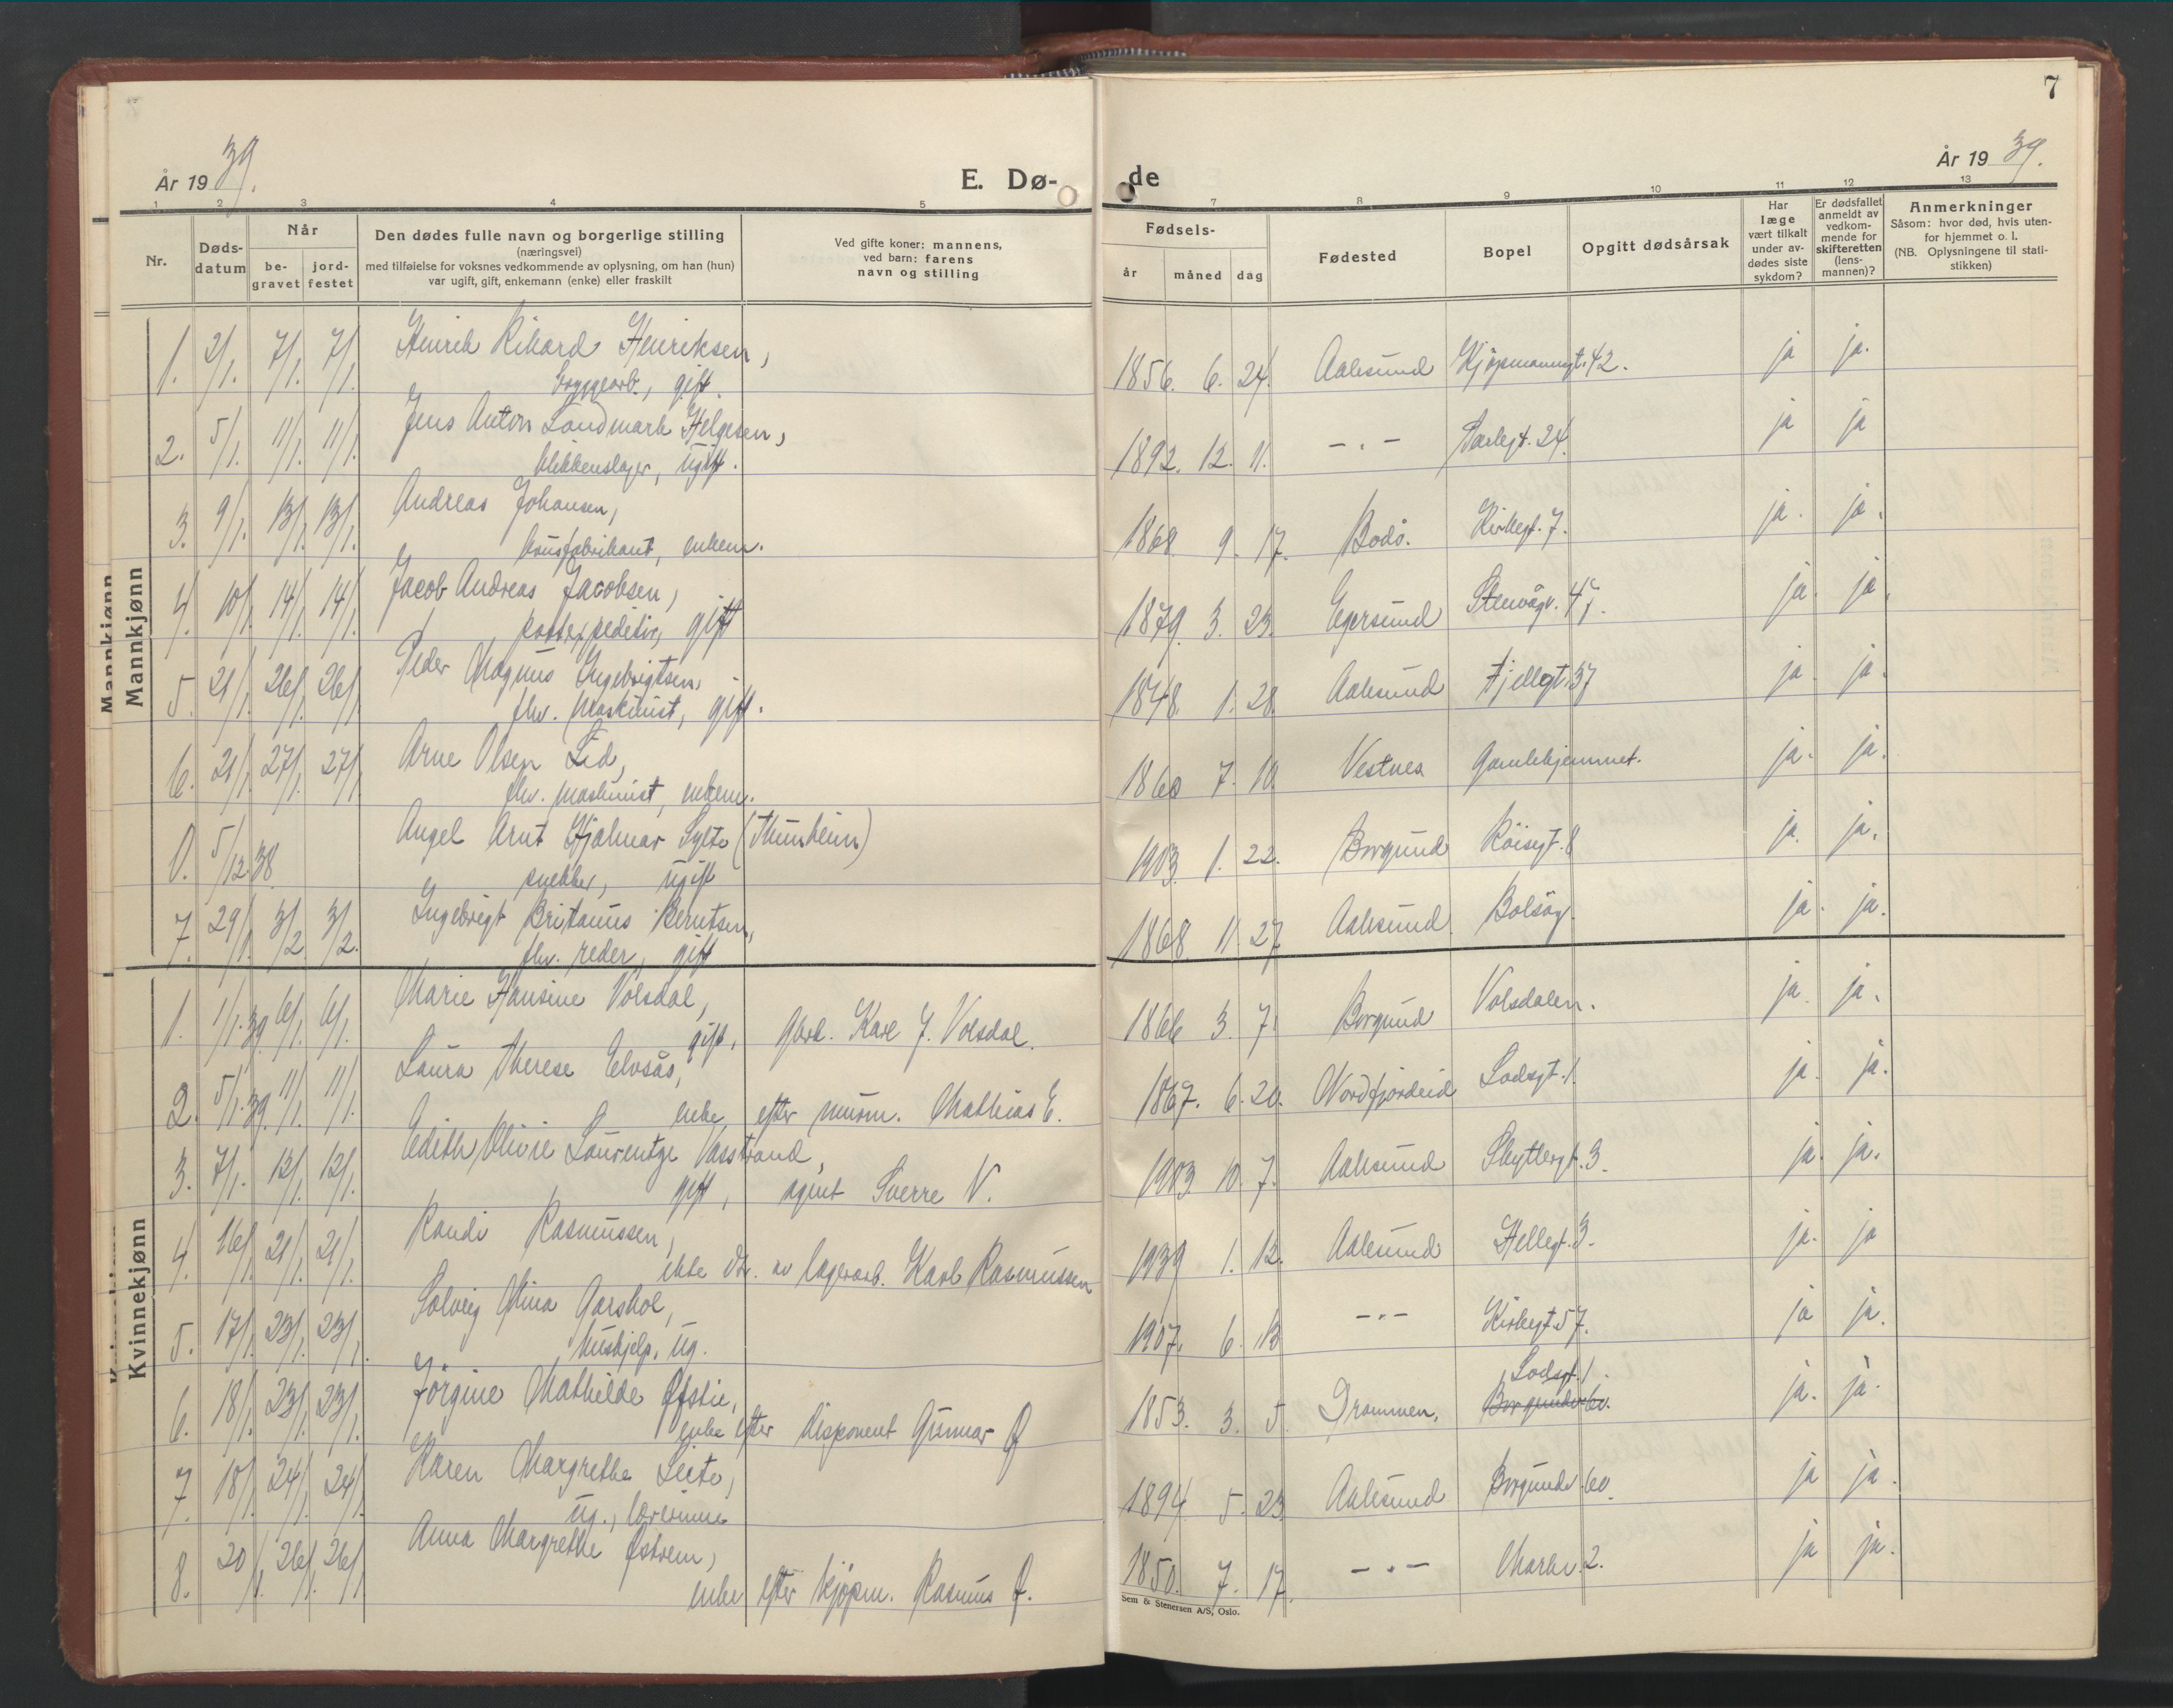 7
År 1939.
E. Dø-
de
År 1939.
1 2 3 4 5 7 8 9 10 11 12 13
Nr.
Døds-
datum
Når
be-
gravet
jord-
festet
Den dødes fulle navn og borgerlige stilling
(næringsvei)
med tilføielse for voksnes vedkommende av oplysning, om han (hun)
var ugift, gift, enkemann (enke) eller fraskilt
Ved gifte koner: mannens,
ved barn: farens
navn og stilling
Fødsels-
år måned dag
Fødested
Bopel
Opgitt dødsårsak
Har
læge
vært tilkalt
under av-
dødes siste
sykdom?
Er dødsfallet
anmeldt av
vedkom-
mende for
skifteretten
(lens-
mannen)?
Anmerkninger
Såsom: hvor død, hvis uten-
for hjemmet o. l.
(NB. Oplysningene til stati-
stikken)
Mannkjønn
Mannkjønn
1. 2/1. 7/1. 7/1. Henrik Rikard Henriksen, 1856. 6. 24. Aalesund Kjøpmannsgt. 42. ja ja.
bryggearb., gift.
2. 5/1. 11/1. 11/1. Jens Anton Landmark Helgesen, 1892. 12. 11. -"- 24. ja ja
blikkenslager, ugift.
3. 9/1. 13/1. 13/1. Andreas Johansen, 1868. 9. 17. Bodö. Kirkegt. 7. ja. ja.
enkem.
4. 10/1. 14/1. 14/1. Jacob Andreas Jacobsen, 1879. 3. 23. Egersund Stenvågv. ja. ja.
postexpeditør, gift
5. 21/1. 26/1. 26/1. Peder Magnus Ingebrigtsen, 1848. 1. 28. Aalesund Fjellgt. 37 ja. ja.
fhv. maskinist, gift.
6. 21/1. 27/1. 27/1. Arne Olsen Lid, 1860 7. 10. Vestnes Gamlehjemmet. ja. ja.
fhv. maskinist, enkem.
0. 5/12. 38 Angel Arnt Hjalmar Sylte (Thunheim) 1903. 1. 22. Borgund Röisgt. 8 ja. ja.
snekker, ugift
7. 29/1. 3/2. 3/2. Ingebrigt Britanus Berntsen, 1868 11. 27. Aalesund ja. ja.
fhv. reder, gift
Kvinnekjønn
1. 1/1. 39. 6/1. 6/1. Marie Hansine Volsdal, 1866 3. 7. Borgund Volsdalen. ja. ja.
gift, Gbrd. Karl J. Volsdal.
2. 5/1. 39. 11/1. 11/1. Laura Therese Elvsås, 1867. 6. 20. Nordfjordeid Lodsgt. 1. ja. ja.
enke efter murm. Mathias E.
3. 7/1. 12/1. 12/1. Edith Olivie Laurentze Vasstrand, 1903. 10. 7. Aalesund Skyttergt. 3. ja. ja.
gift, agent Sverre V.
4. 16/1. 21/1. 21/1. Randi Rasmussen, 1939 1. 12. Aalesund Hellegt. 3. ja. ja
ikke av lagerarb. Karl Rasmussen
5. 17/1. 23/1. 23/1. Solveig Mina Aarskol, 1907. 6. 13 -"- Kirkegt. 57. ja ja.
hushjelp, ug.
6. 18/1. 23/1. 23/1. Jörgine Mathilde Øfstie, 1853. 3. 5. Drammen. Lodsgt. 1. ja. ja.
Borgundv. 60.
enke efter disponent Gunnar Ø
7. 18/1. 24/1. 24/1. Karen Margrethe Leite, 1894 5. 23. Aalesund Borgundv. 60. ja ja.
ug., lærerinne
8. 20/1. 26/1. 26/1. Anna Margrethe Østrem, 1850. 7. 17. -"- 2. ja ja.
enke efter kjøpm. Rasmus Ø.
Sem & Stenersen A/S, Oslo.